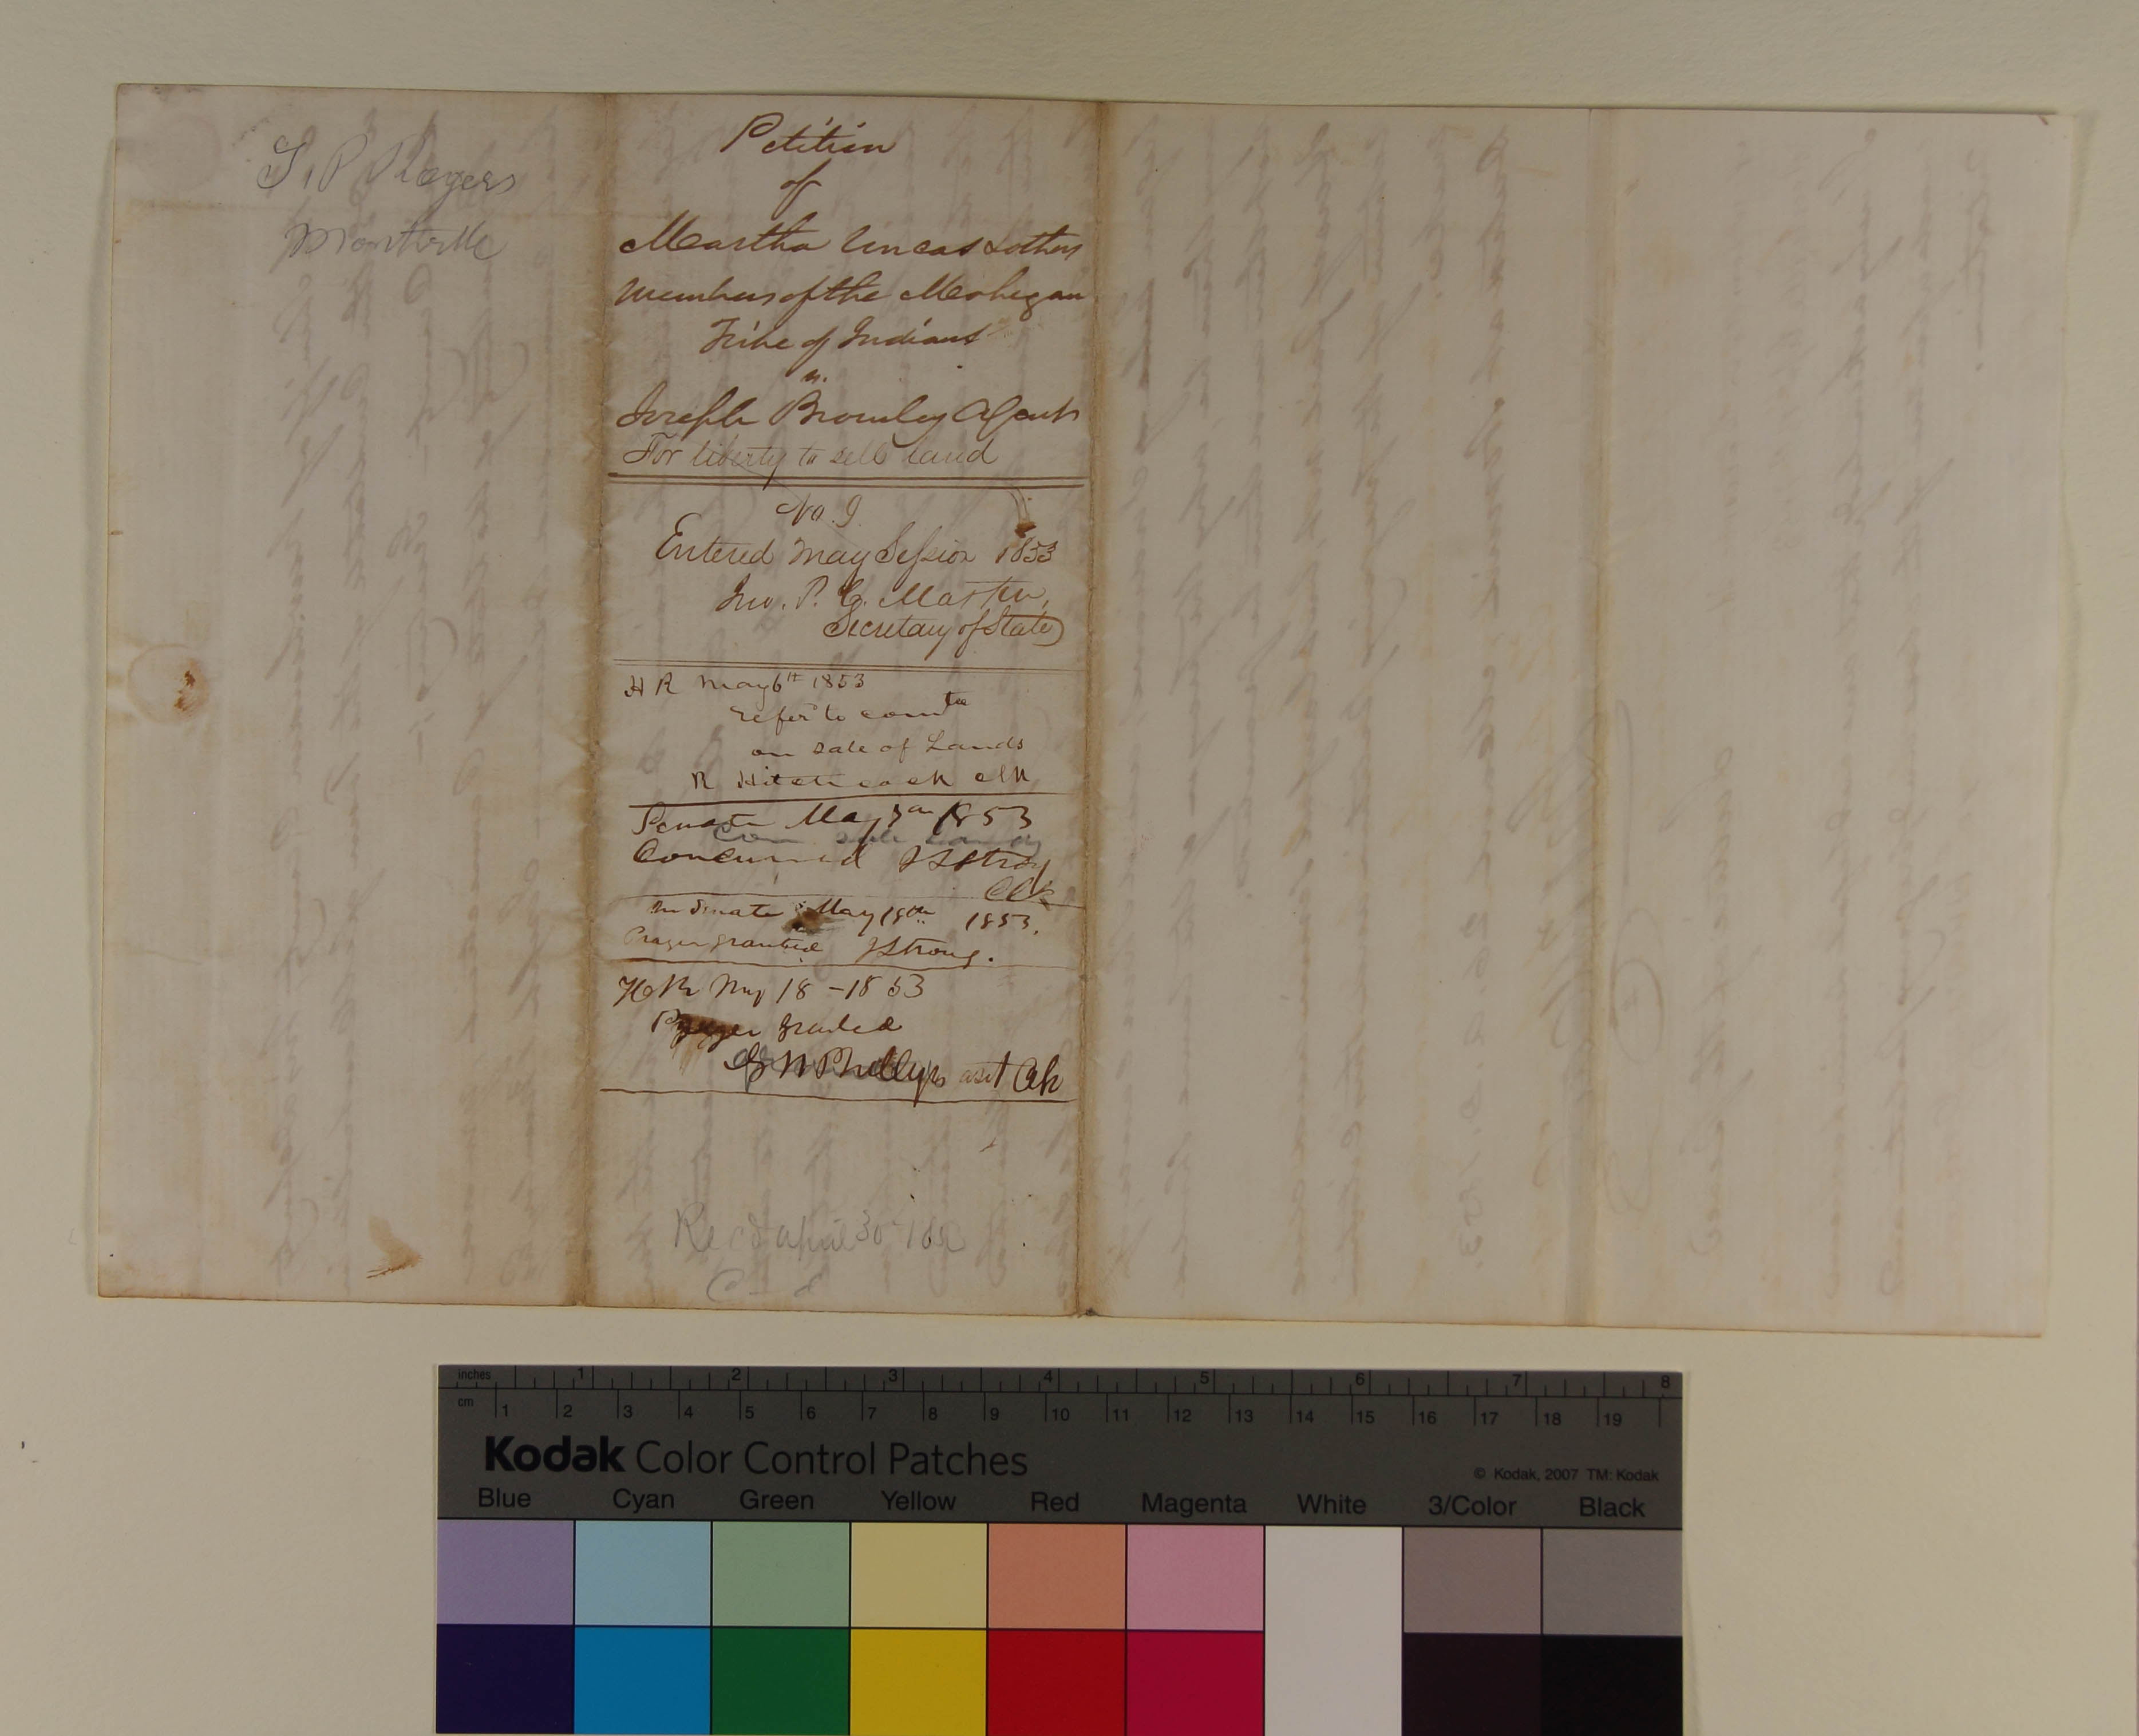 S. P. Rogers
Montville
Petition
of
Martha Uncas & others
Members of the Mohegan
Tribe of Indians
vs.
Joseph Bromley Agent
For liberty to sell land
No. 9
Entered May Session 1853
Jno. P. C. Mather,
Secretary of State
H R May 6th 1853
refer to comtee
on sale of Lands
R Hitchcock clk
Senate May 1853
Com sale
Concurred J Strong
Clk
In Senate May 18th 1853.
Prayer granted J Strong.
H R May 18 - 1853
Prayer granted
G N Phillips asst Clk
Recd april 30
inches 1 2 3 4 5 6 7 8
cm 1 2 3 4 5 6 7 8 9 10 11 12 13 14 15 16 17 18 19
Kodak Color Control Patches
© Kodak, 2007 TM: Kodak
Blue Cyan Green Yellow Red Magenta White 3/Color Black